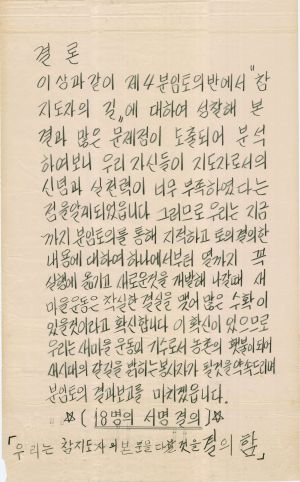 결론
이상과 같이 제4분임토의반에서 "참
지도자의 길"에 대하여 성찰해 본
결과 많은 문제점이 도출되어 분석
하여보니 우리 자신들이 지도자로서의
신념과 실천력이 너무 부족하였다는
점을알게되었읍니다 그러므로 우리는 지금
까지 분임토의를 통해 지적하고 토의결의한
내용에 대하여 하나에서부터 열까지 꼭
실행에 옮기고 새로운것을 개발해 나갈때 새
마을운동은 착실한 결실을 맺어 많은 수확이
있을것이라고 확신합니다 이 확신이 있으므로
우리는 새마을 운동의 기수로서 농촌의 횃불이되어
새시대의 갈길을 밝히는봉사자가 될것을약속드리며
분임토의 결과보고를 마치겠읍니다.
☆(18명의 서명 결의)☆
「우리는 참지도자의 본분을 다할것을 결의함」